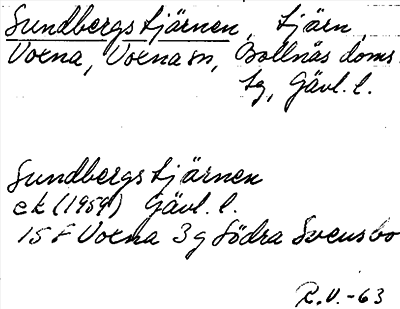 Sundbergstjärnen, tjärn,
Voxna, Voxna sn, Bollnäs doms
sg, Gävl. l.
Sundbergstjärnen
ek (1959) Gävl. l.
15F Voxna 3g Södra Svensbo
R.V.-63